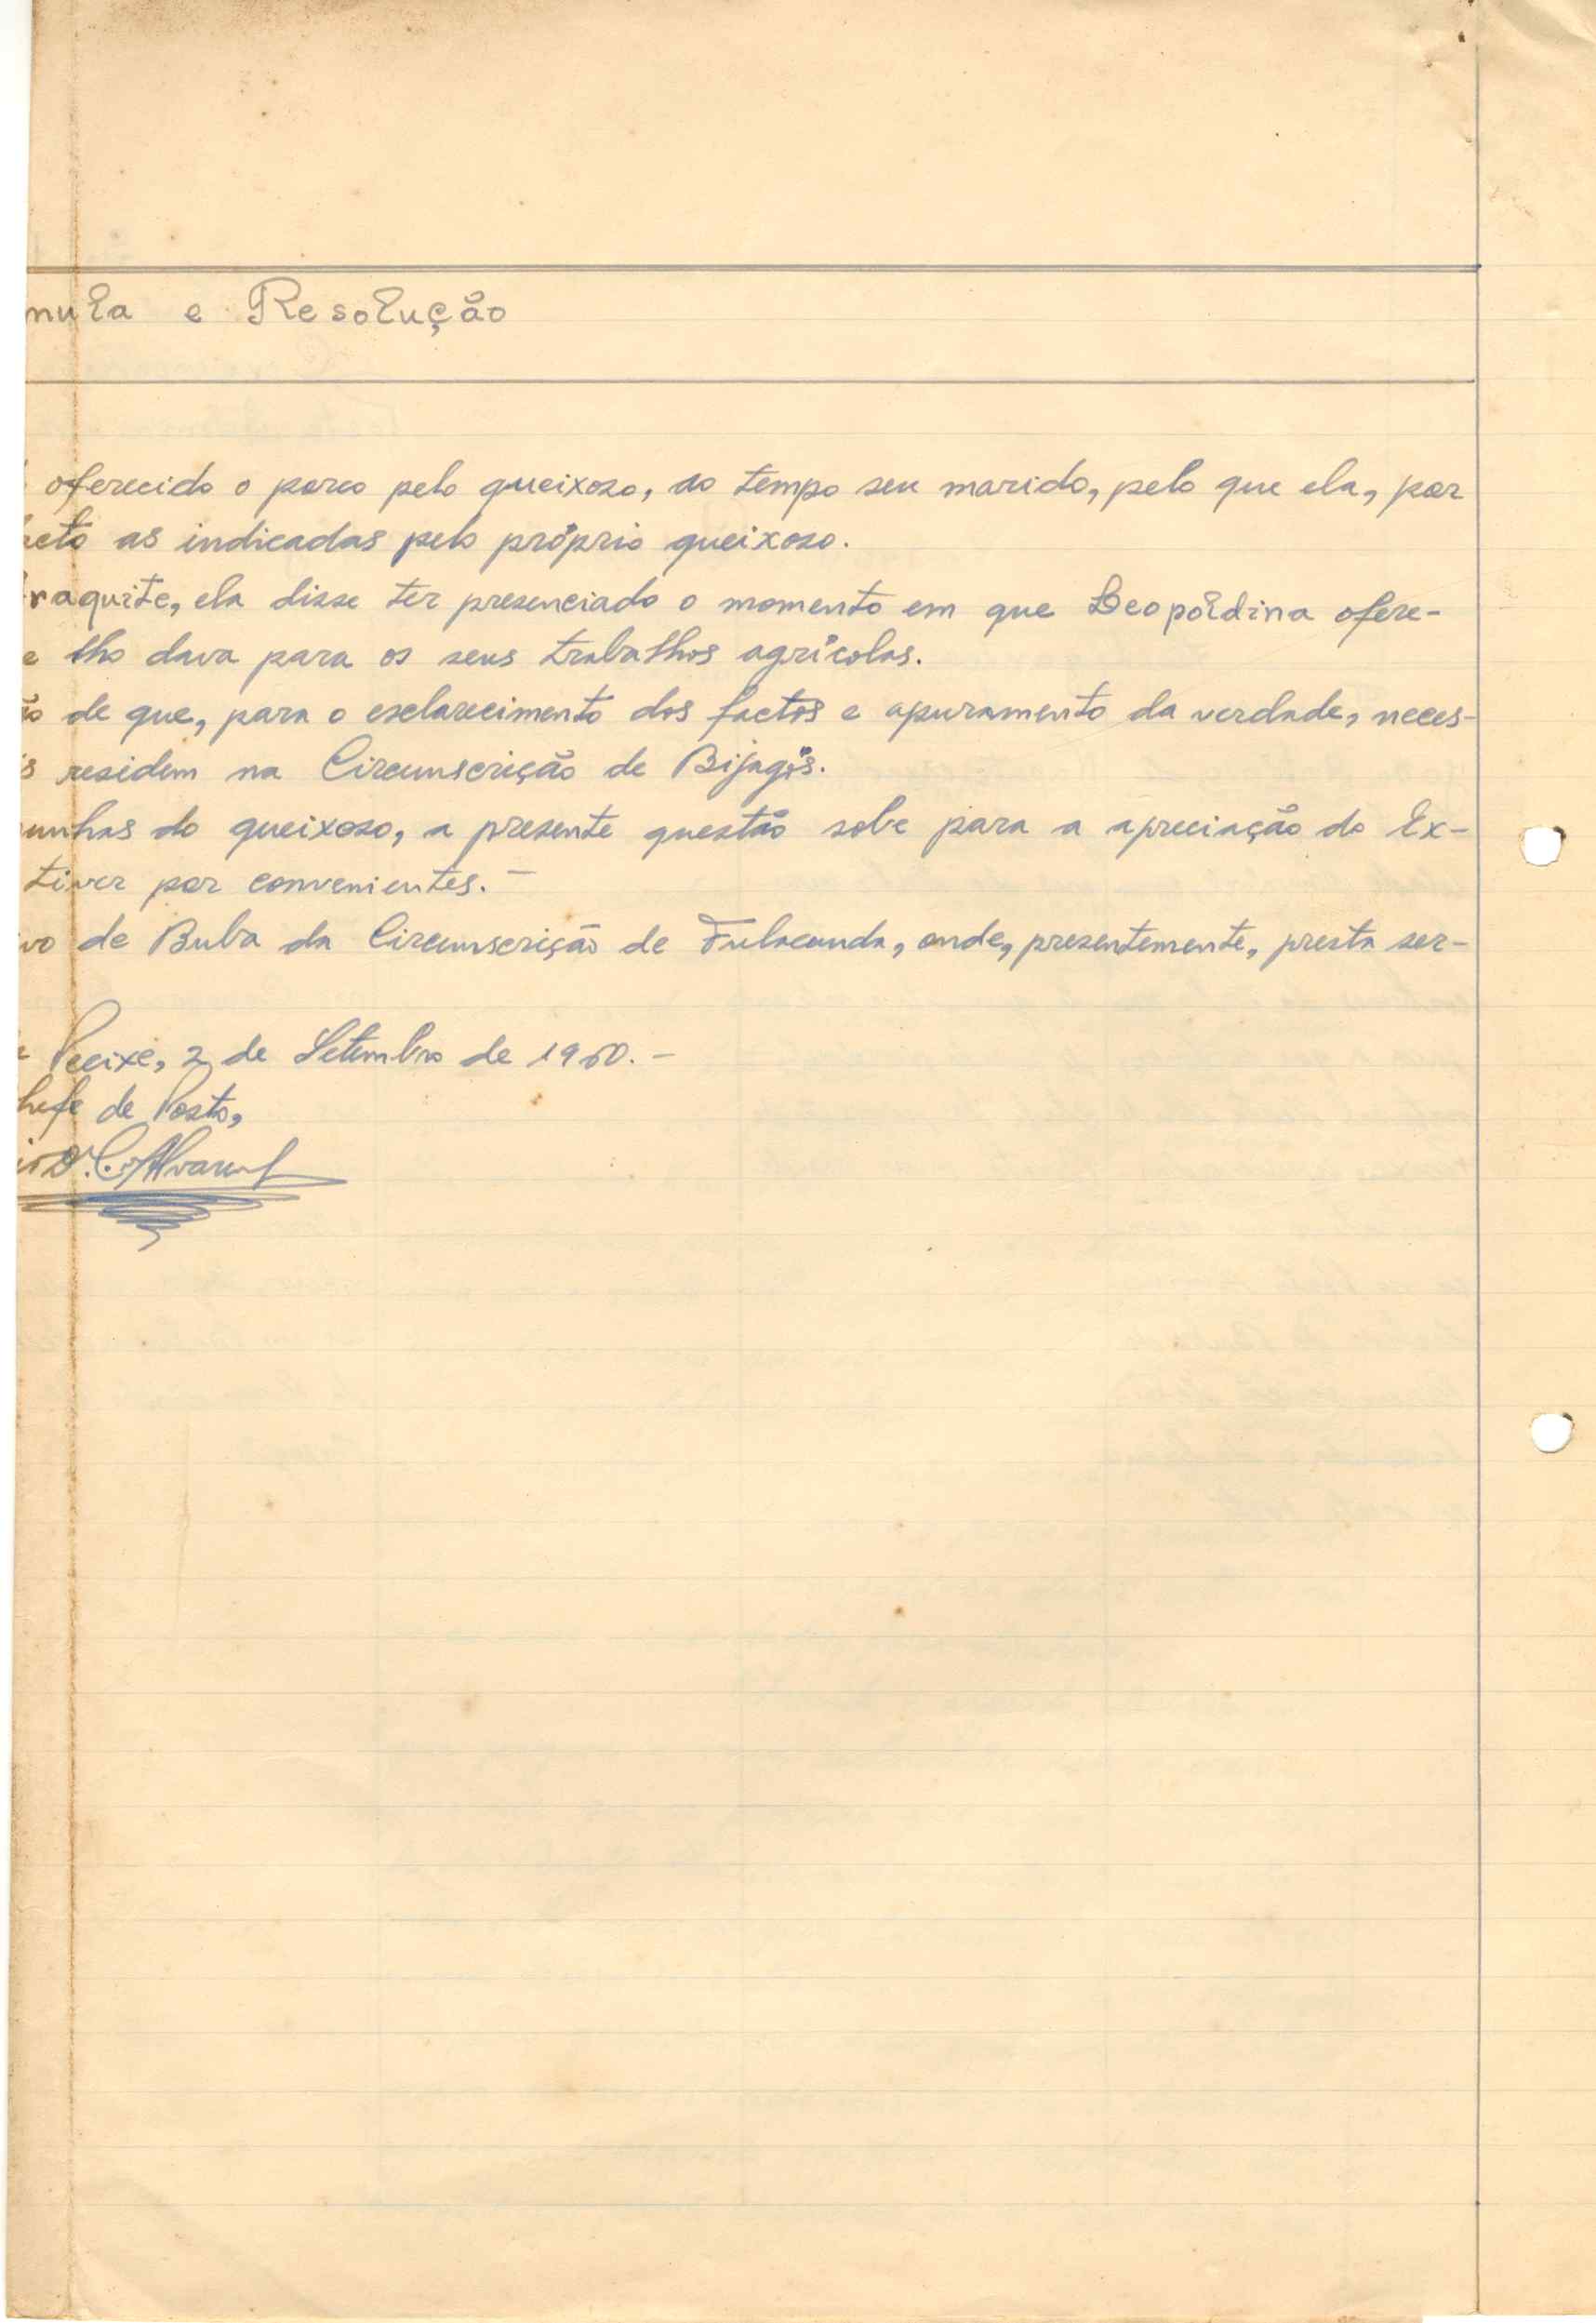 nula e Resolução
oferecido o porco pelo queixoso, ao tempo seu marido, pelo que ela, por
as indicadas pelo próprio queixoso.
raquite, ela disse ter presenciado o momento em que Leopoldina ofere-
e lho dava para os seus trabalhos agrícolas.
ão de que, para o esclarecimento dos factos e apuramento da verdade, neces-
s residem na Circunscrição de Bijagós.
unhas do queixoso, a presente questão sobe para a apreciação do Ex-
tiver por convenientes. –
vo de Buba da Circunscrição de Fulacunda, onde, presentemente, presta ser-
Pecixe, 2 de Setembro de 1960. –
hefe de Posto,